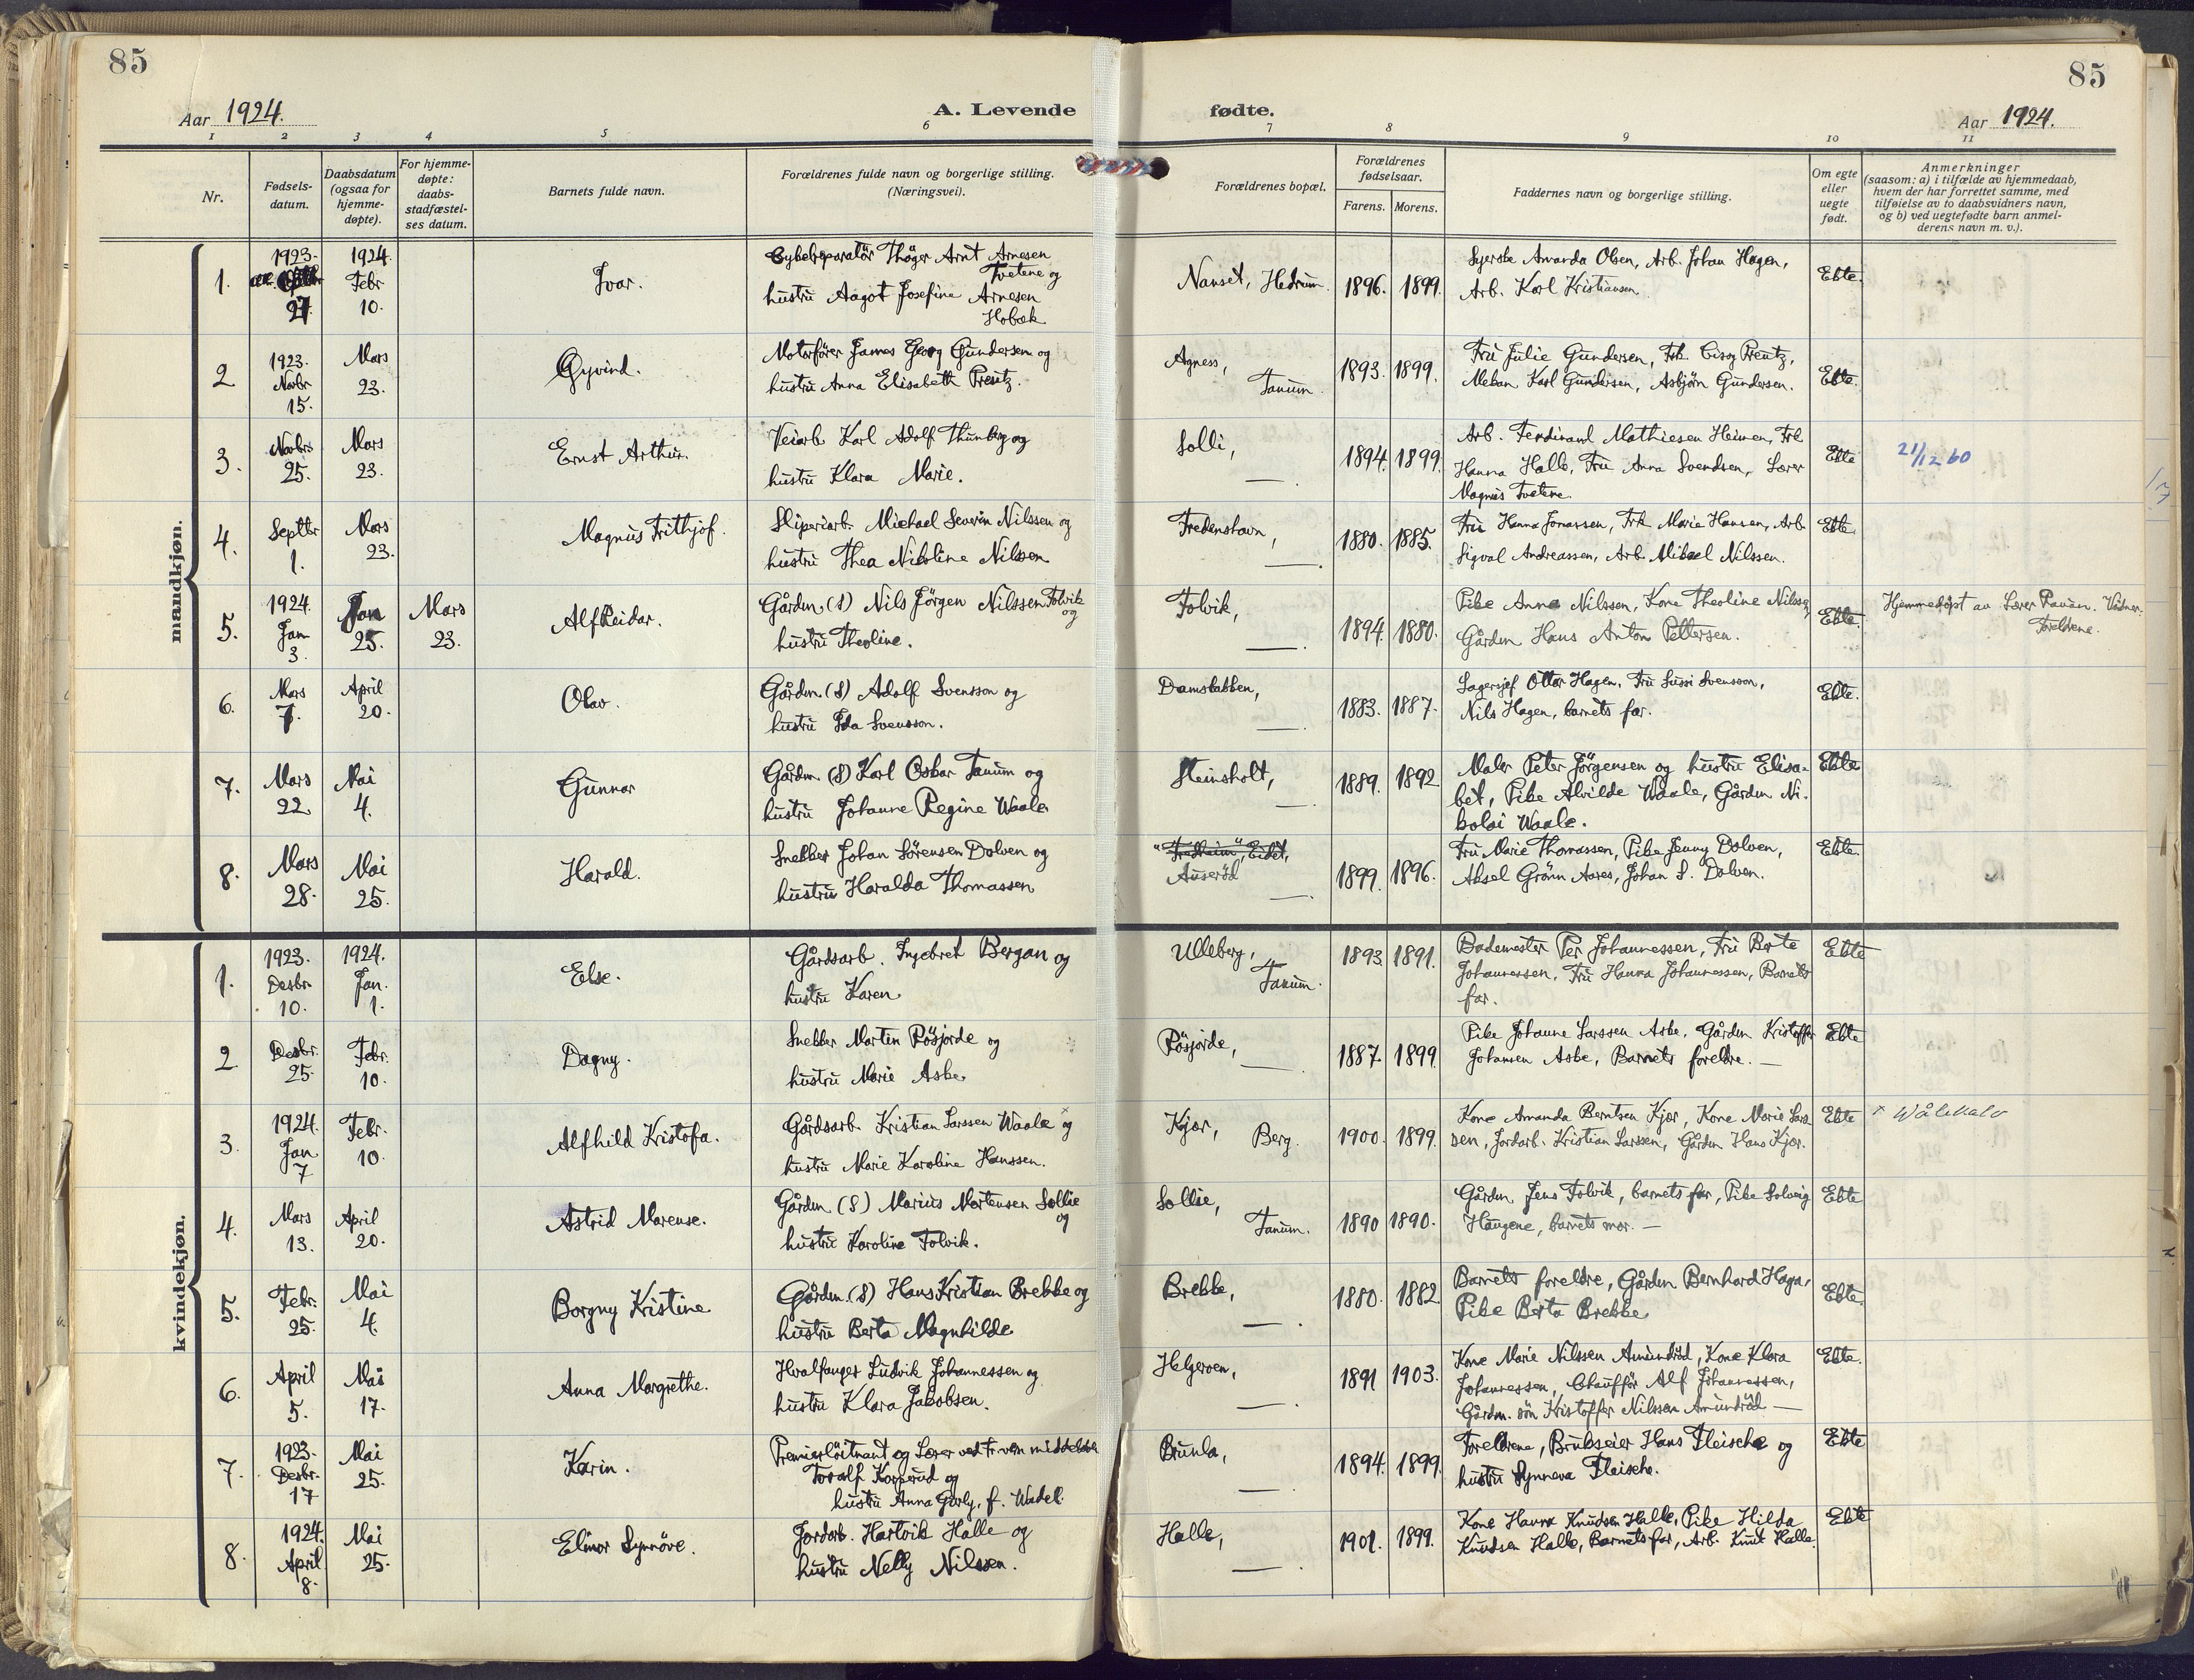 85
85
Aar 1924.
A. Levende
fødte.
Aar 1924.
1 2 3 4 5 6 7 8 9 10 11
Nr.
Fødsels-
datum.
Daabsdatum
(ogsaa for
hjemme-
døpte).
For hjemme-
døpte:
daabs-
stadfæstel-
ses datum.
Barnets fulde navn.
Forældrenes fulde navn og borgerlige stilling.
(Næringsvei).
Forældrenes bopæl.
Forældrenes
fødselsaar.
Farens. Morens.
Faddernes navn og borgerlige stilling.
Om egte
eller
uegte
født.
Anmerkninger
(saasom: a) i tilfælde av hjemmedaab,
hvem der har forrettet samme, med
tilføielse av to daabsvidners navn,
og b) ved uegtefødte barn anmel-
derens navn m. v.).
mandkjøn.
1.
1923.
27.
1924.
Febr
10.
Ivar.
Cykelreparatör Thöger Arnt Arnesen
Tvetene og
hustru Aagot Josefine Arnesen
Hobæk
Nanset, Hedrum.
1896. 1899.
Syerske Amanda Olsen, Arb. Johan Hagen,
Arb. Karl Kristiansen
Ekte.
2
1923.
Novbr
15.
Mars
23.
Øyvind.
Motorfører James Georg Gundersen og
hustru Anna Elisabeth Prentz.
Agness,
Tanum
1893. 1899.
Fru Julie Gundersen, Frk. Cissy Prentz,
Mekan Karl Gundersen, Asbjörn Gundersen.
Ekte.
3.
Novbr.
25.
Mars
23.
Ernst Arthur.
Veiarb. Karl Adolf Thunberg og
hustru Klara Marie.
Solli,
—.
1894. 1899.
Arb. Ferdinand Mathiesen Heimen, Frk
Hanna Halle, Fru Anna Svendsen, Lærer
Magnus Tvetene.
Ekte
21/12 60
4.
Septbr
1.
Mars
23.
Magnus Frithjof.
Sliperiarb. Michael Severin Nilssen og
hustru Thea Nikoline Nilssen
Fredenshavn,
—.
1880. 1885.
Fru Hanna Jonassen, Frk Marie Hansen, Arb.
Sigval Andreassen, Arb. Mikael Nilssen.
Ekte.
5.
1924.
Jan
3.
Jan
25.
Mars
23.
Alf Reidar.
Gårdm. (S) Nils Jörgen Nilssen Folvik
og
hustru Theoline.
Folvik,
—.
1894. 1880.
Pike Anna Nilssen, Kone Theoline Nilssen
Gårdm Hans Anton Pettersen.
Ekte.
Hjemmedöpt av Lærer Rauan. Vidner:
Foreldrene.
6.
Mars
7.
April
20.
Olav.
Gårdm. (S) Adolf Svensson og
hustru Ida Svensson.
Damsbakken,
—.
1883. 1887.
Lagersjef Ottar Hagen, Fru Sussi Svensson,
Nils Hagen, barnets far.
Ekte.
7.
Mars
22
Mai
4.
Gunnar
Gårdm. (S) Karl Oskar Tanum og
hustru Johanne Regine Waale
Steinsholt,
—.
1889. 1892
Maler Peter Jörgensen og hustru Elisa-
bet, Pike Alvilde Waale, Gårdm Ni-
kolai Waale.
Ekte
8.
Mars
28.
Mai
25.
Harald.
Snekker Johan Sörensen Dolven og
hustru Haralda Thomassen
"Fredheim", Eidet,
Auseröd
—.
1899. 1896.
Fru Marie Thomassen, Pike Jenny Dolven,
Aksel Grönn Aares, Johan S. Dolven.
Ekte.
kvindekjøn.
1.
1923.
Desbr.
10.
1924.
Jan.
1.
Else.
Gårdsarb. Ingebret Bergan og
hustru Karen
Ulleberg,
Tanum.
1893. 1891.
Bademester Per Johannessen, Fru Berte
Johannessen, Fru Hanna Johannessen, Barnets
far.
Ekte
2
Desbr.
25.
Febr.
10.
Dagny.
Snekker Martin Rösjorde og
hustru Marie Aske
Rösjorde,
—.
1887. 1899
Pike Johanne Larssen Aske, Gårdm Kristoffer
Johansen Aske, Barnets foreldre. —
Ekte
3.
1924.
Jan
7
Febr.
10.
Alfhild Kristofa.
Gårdsarb. Kristian Larssen Waale x og
hustru Marie Karoline Hanssen.
Kjær,
Berg.
1900. 1899.
Kone Amanda Berntsen Kjær, Kone Marie Lars-
sen, Jordarb. Kristian Larssen, Gårdm Hans Kjær.
Ekte
x Wålekalv
4.
Mars
13.
April
20.
Astrid Marense.
Gårdm (S) Marius Martensen Sollie
og
hustru Karoline Folvik.
Sollie,
Tanum.
1890 1890.
Gårdm. Jens Folvik, barnets far, Pike Solveig
Haugene, barnets mor. —
Ekte
5.
Febr.
25.
Mai
4.
Borgny Kristine
Gårdm. (S) Hans Kristian Brekke og
hustru Berta Magnhilde
Brekke,
—.
1880. 1882
Barnets foreldre, Gårdm Bernhard Haga,
Pike Berta Brekke
Ekte.
6.
April
5.
Mai
17.
Anna Margrethe.
Hvalfanger Ludvik Johannessen og
hustru Klara Jakobsen.
Helgeroen,
—.
1891 1903.
Kone Marie Nilssen Amundröd, Kone Klara
Johannessen, Chauffør Alf Johannessen,
Gårdm. sön Kristoffer Nilssen Amundröd —
Ekte.
7.
1923.
Desbr.
17
Mai
25.
Karin.
Premierlöitnant og Lærer ved Fr.vern middelskole
Toralf Korperud og
hustru Anna Gurly, f. Wadel.
Brunla,
—.
1894. 1899.
Foreldrene, Brukseier Hans Fleischer og
hustru Synneva Fleischer.
Ekte
8.
1924.
April
8.
Mai
25.
Elinor Synnöve.
Jordarb. Hartvik Halle og
hustru Nelly Nilssen.
Halle,
—.
1901. 1899.
Kone Hanna Knudsen Halle, Pike Hilda
Knudsen Halle, Barnets far, Arb. Knut Halle.
Ekte